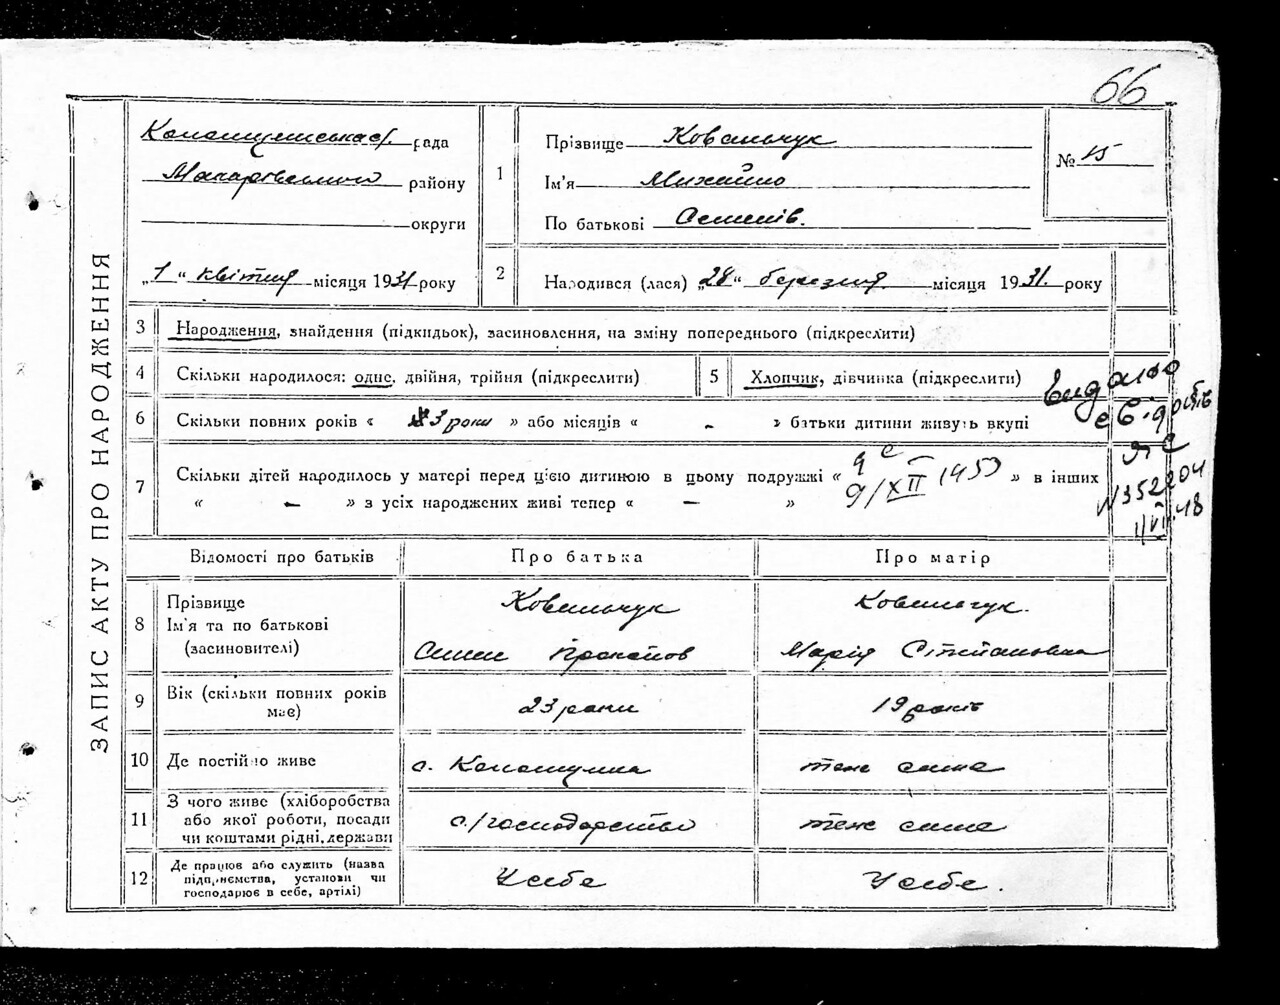 66
ЗАПИС АКТУ ПРО НАРОДЖЕННЯ
рада
Макарівського району
округи
„1“ квітня місяця 1931 року
1
Прізвище Ковальчук
Ім'я Михайло
По батькові Семенів.
№ 15
2
Народився (лася) „28“ березня місяця 1931. року
3 Народження, знайдення (підкидьок), засиновлення, на зміну попереднього (підкреслити)
4 Скільки народилося: одне, двійня, трійня (підкреслити)
5 Хлопчик, дівчинка (підкреслити)
6 Скільки повних років « 3 роки » або місяців « - » батьки дитини живуть вкупі
7 Скільки дітей народилось у матері перед цією дитиною в цьому подружжі « » в інших
« — » з усіх народжених живі тепер « — »
9/XII 1953
Видано
свідоцтв
№352204
1/VII.48
Відомості про батьків
Про батька
Про матір
8 Прізвище
Ім'я та по батькові
(засиновителі)
Ковальчук
Семен
Ковальчук.
Марія Степановна
9 Вік (скільки повних років
має)
23 роки
19 років
10 Де постійно живе
с. Копашулка
теж саме
11 З чого живе (хліборобства
або якої роботи, посади
чи коштами рідні, держави
с/господарство
теж саме
12 Де працює або служить (назва
підприємства, установи чи
господарює в себе, артілі)
У себе
У себе.